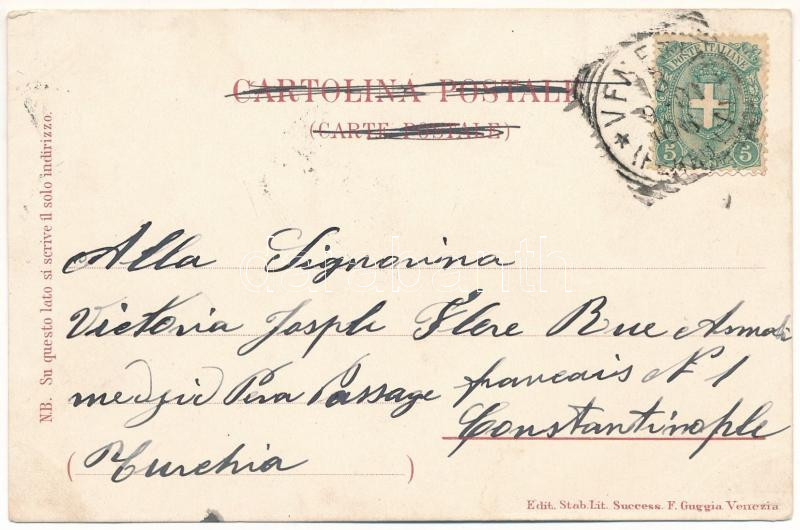 CARTOLINA POSTALE
(CARTE POSTALE)
POSTE ITALIANE
5 5
VENEZIA
N.B. Su questo lato si scrive il solo indirizzo.
Alla Signorina
Victoria Joseph Flore Rue Asmali
medjid Pera Passage français N° 1
Constantinople
(Turchia)
Edit. Stab. Lit. Success. F. Guggia Venezia
darabanth